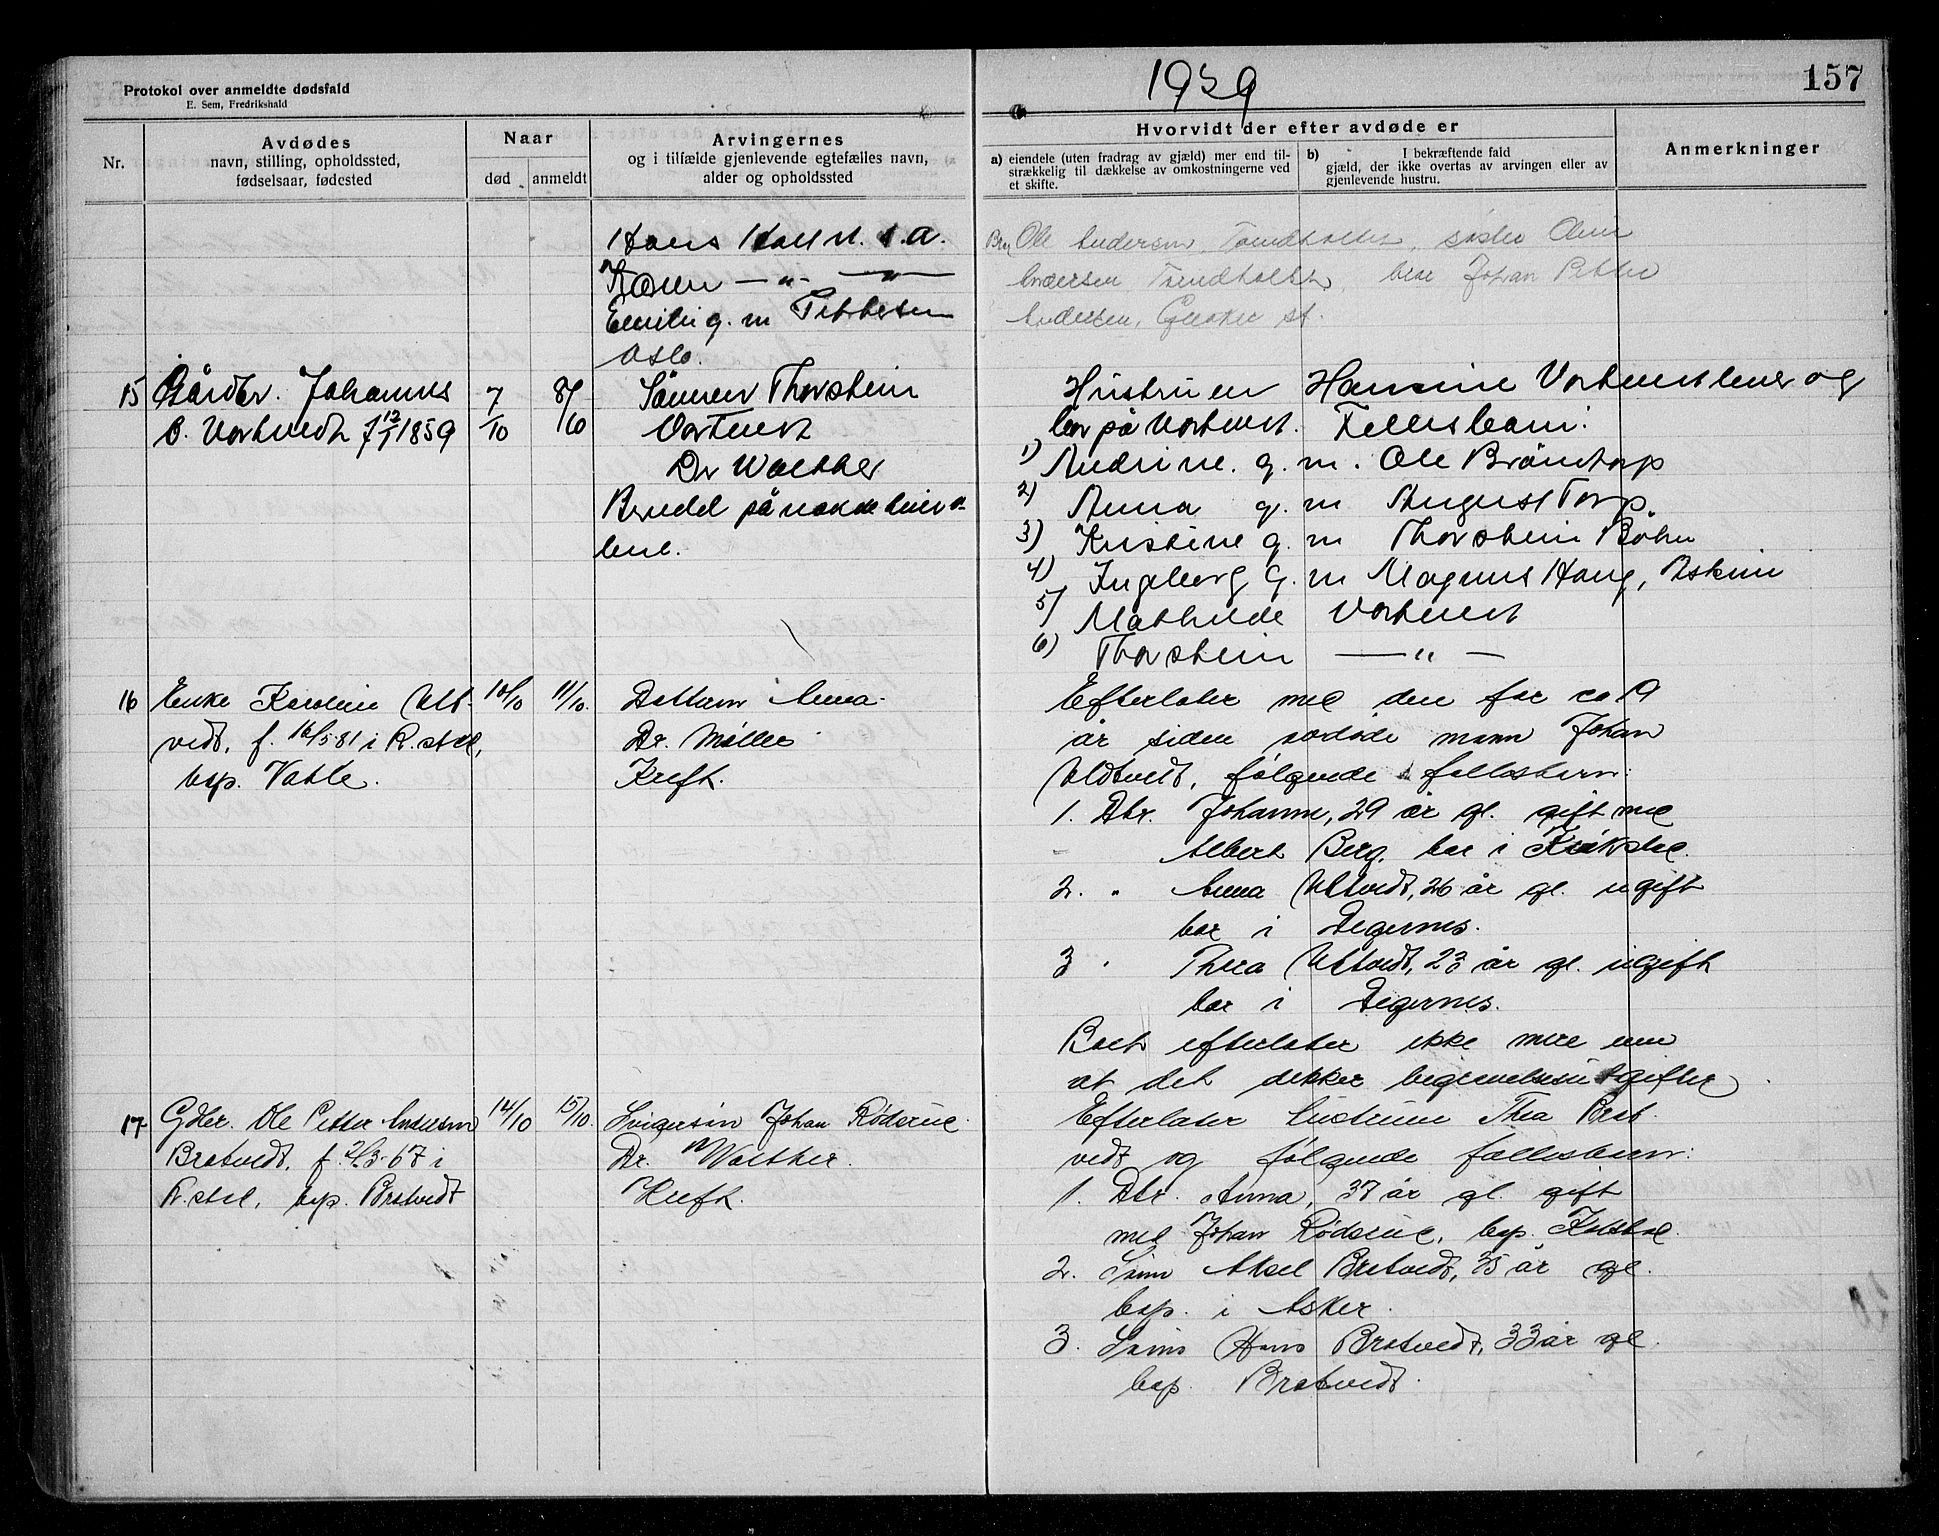 Protokol over anmeldte dødsfald
E. Sem, Fredrikshald
1939
157
Nr.
Avdødes
navn, stilling, opholdssted,
fødselsaar, fødested
Naar
død
anmeldt
Arvingernes
og i tilfælde gjenlevende egtefælles navn,
alder og opholdssted
Hvorvidt der efter avdøde er
a) eiendele (uten fradrag av gjæld) mer end til-
strækkelig til dækkelse av omkostningerne ved
et skifte.
b) I bekræftende fald
gjæld, der ikke overtas av arvingen eller av
gjenlevende hustru.
Anmerkninger
Hans
Karen — " — "
Emilie g. m Tebbesen
Oslo.
Ole Andersen, søster
Andersen bror Johan Petter
Andersen, st.
15 Gårdbr. Johannes
O. Vortvedt f 12/1 1859
7/10
8/10
Sönnen Thorstein
Vortvedt
Dr Walther
Hustruen Hansine Vortvedt lever og
bor på Vortvedt. Fellesbarn:
1) Andrine. g. m. Ole Bröntorp
2) Anna g. m August Torp
3) Kristine g. m Thorstein Böhn
4) Ingeborg g. m Magnus Haug, Askim
5) Mathilde Vortvedt
6) Thorstein — " —
16 Enke Karoline Ult-
vedt, f. 16/5 81 i R.stad,
bop. Vatle.
10/10
11/10.
Datteren Anna
Dr. Møller
Kreft.
Efterlater med den for ca 19
år siden avdøde mann Johan
Ultvedt, følgende fellesbarn:
1. Dtr. Johanne, 29 år gl. gift med
Albert Berg, bor i
2. " Anna Ultvedt, 26 år gl. ugift
bor i Degernes.
3 " Thea Ultvedt, 23 år gl. ugift
bor i Degernes.
Boet efterlater ikke mere enn
at det dekker begravelsesutgifter.
17 Gdbr. Ole Petter Andersen
Bratvedt, f. 2/3-67 i
R.stad, bop. Bratvedt
14/10
15/10.
Svigersøn Johan Röderud
Dr. Walther.
Kreft.
Efterlater hustruen Thea Brat-
vedt og følgende fellesbarn:
1. Dtr. Anna, 37 år gl. gift
med Johan Röderud, bop.
2. Sønn Aksel Bratvedt, 35 år gl.
bop. i Asker.
3. Sønn Hans Bratvedt, 33 år gl.
bop. Bratvedt.